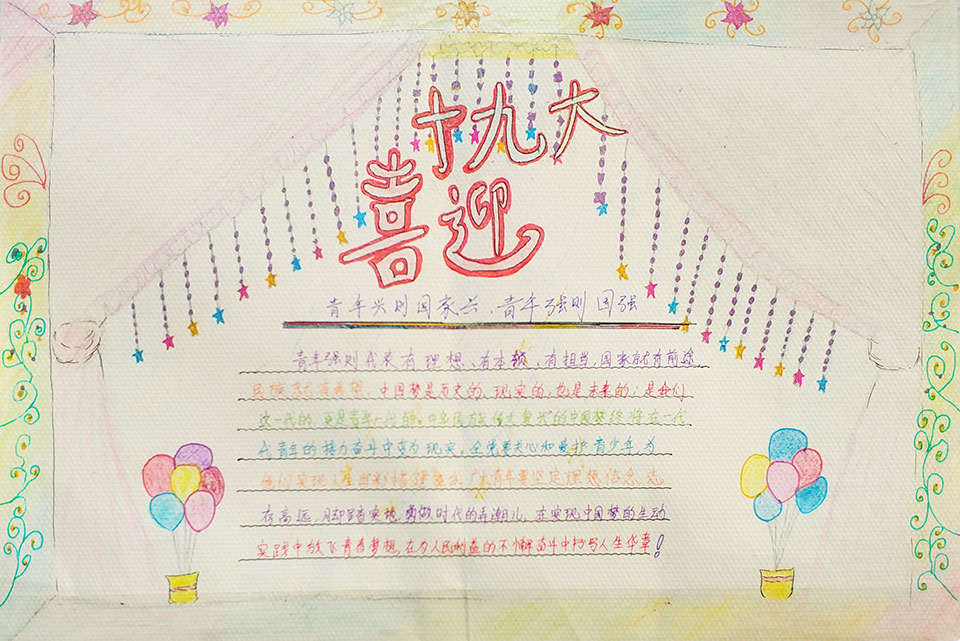 十九大
喜迎
青年兴则国家兴、青年强则国强
青年强则代表有理想、有本领、有担当,国家就有前途
民族就有希望。中国梦是历史的,现实的,也是未来的;是我们
这一代的,更是青年一代的。中华民族伟大复兴的中国梦终将在一代
代青年的接力奋斗中变为现实。全党要关心和爱护青少年为
他们实现人生出彩搭建舞台。广大青年要坚定理想信念,志
存高远,脚踏实地,勇做时代的弄潮儿,在实现中国梦的生动
实践中放飞青春梦想,在为人民利益的不懈奋斗中书写人生华章!